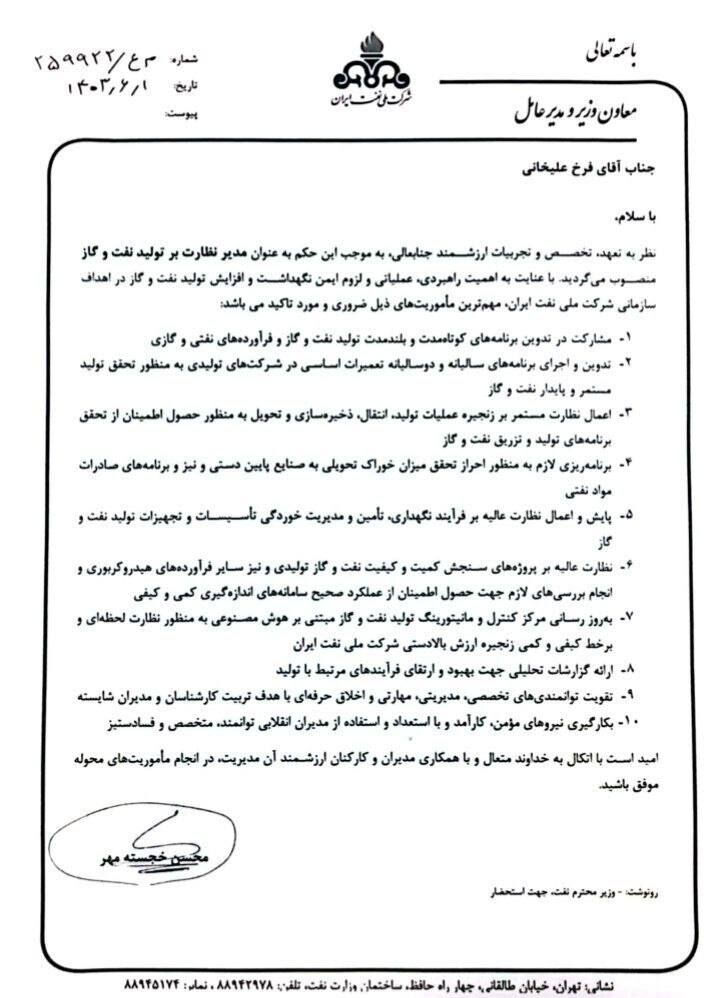 باسمه تعالی
شماره: م ع/۲۵۹۹۲۲
تاریخ: ۱۴۰۳٫۶٫۱
پیوست:
شرکت ملی نفت ایران
معاون وزیر و مدیرعامل
جناب آقای فرخ علیخانی
با سلام،
نظر به تعهد، تخصص و تجربیات ارزشمند جنابعالی، به موجب این حکم به عنوان مدیر نظارت بر تولید نفت و گاز
منصوب می‌گردید. با عنایت به اهمیت راهبردی، عملیاتی و لزوم ایمن نگهداشت و افزایش تولید نفت و گاز در اهداف
سازمانی شرکت ملی نفت ایران، مهم‌ترین مأموریت‌های ذیل ضروری و مورد تاکید می باشد:
۱- مشارکت در تدوین برنامه‌های کوتاه‌مدت و بلندمدت تولید نفت و گاز و فرآورده‌های نفتی و گازی
۲- تدوین و اجرای برنامه‌های سالیانه و دوسالیانه تعمیرات اساسی در شرکت‌های تولیدی به منظور تحقق تولید
مستمر و پایدار نفت و گاز
۳- اعمال نظارت مستمر بر زنجیره عملیات تولید، انتقال، ذخیره‌سازی و تحویل به منظور حصول اطمینان از تحقق
برنامه‌های تولید و تزریق نفت و گاز
۴- برنامه‌ریزی لازم به منظور احراز تحقق میزان خوراک تحویلی به صنایع پایین دستی و نیز و برنامه‌های صادرات
مواد نفتی
۵- پایش و اعمال نظارت عالیه بر فرآیند نگهداری، تأمین و مدیریت خوردگی تأسیسات و تجهیزات تولید نفت و
گاز
۶- نظارت عالیه بر پروژه‌های سنجش کمیت و کیفیت نفت و گاز تولیدی و نیز سایر فرآورده‌های هیدروکربوری و
انجام بررسی‌های لازم جهت حصول اطمینان از عملکرد صحیح سامانه‌های اندازه‌گیری کمی و کیفی
۷- به‌روز رسانی مرکز کنترل و مانیتورینگ تولید نفت و گاز مبتنی بر هوش مصنوعی به منظور نظارت لحظه‌ای و
برخط کیفی و کمی زنجیره ارزش بالادستی شرکت ملی نفت ایران
۸- ارائه گزارشات تحلیلی جهت بهبود و ارتقای فرآیندهای مرتبط با تولید
۹- تقویت توانمندی‌های تخصصی، مدیریتی، مهارتی و اخلاق حرفه‌ای با هدف تربیت کارشناسان و مدیران شایسته
۱۰- بکارگیری نیروهای مؤمن، کارآمد و با استعداد و استفاده از مدیران انقلابی توانمند، متخصص و فسادستیز
امید است با اتکال به خداوند متعال و با همکاری مدیران و کارکنان ارزشمند آن مدیریت، در انجام مأموریت‌های محوله
موفق باشید.
محسن خجسته مهر
رونوشت: - وزیر محترم نفت، جهت استحضار
نشانی: تهران، خیابان طالقانی، چهار راه حافظ، ساختمان وزارت نفت، تلفن: ۸۸۹۴۲۹۷۸ ، نمابر: ۸۸۹۴۵۱۷۴